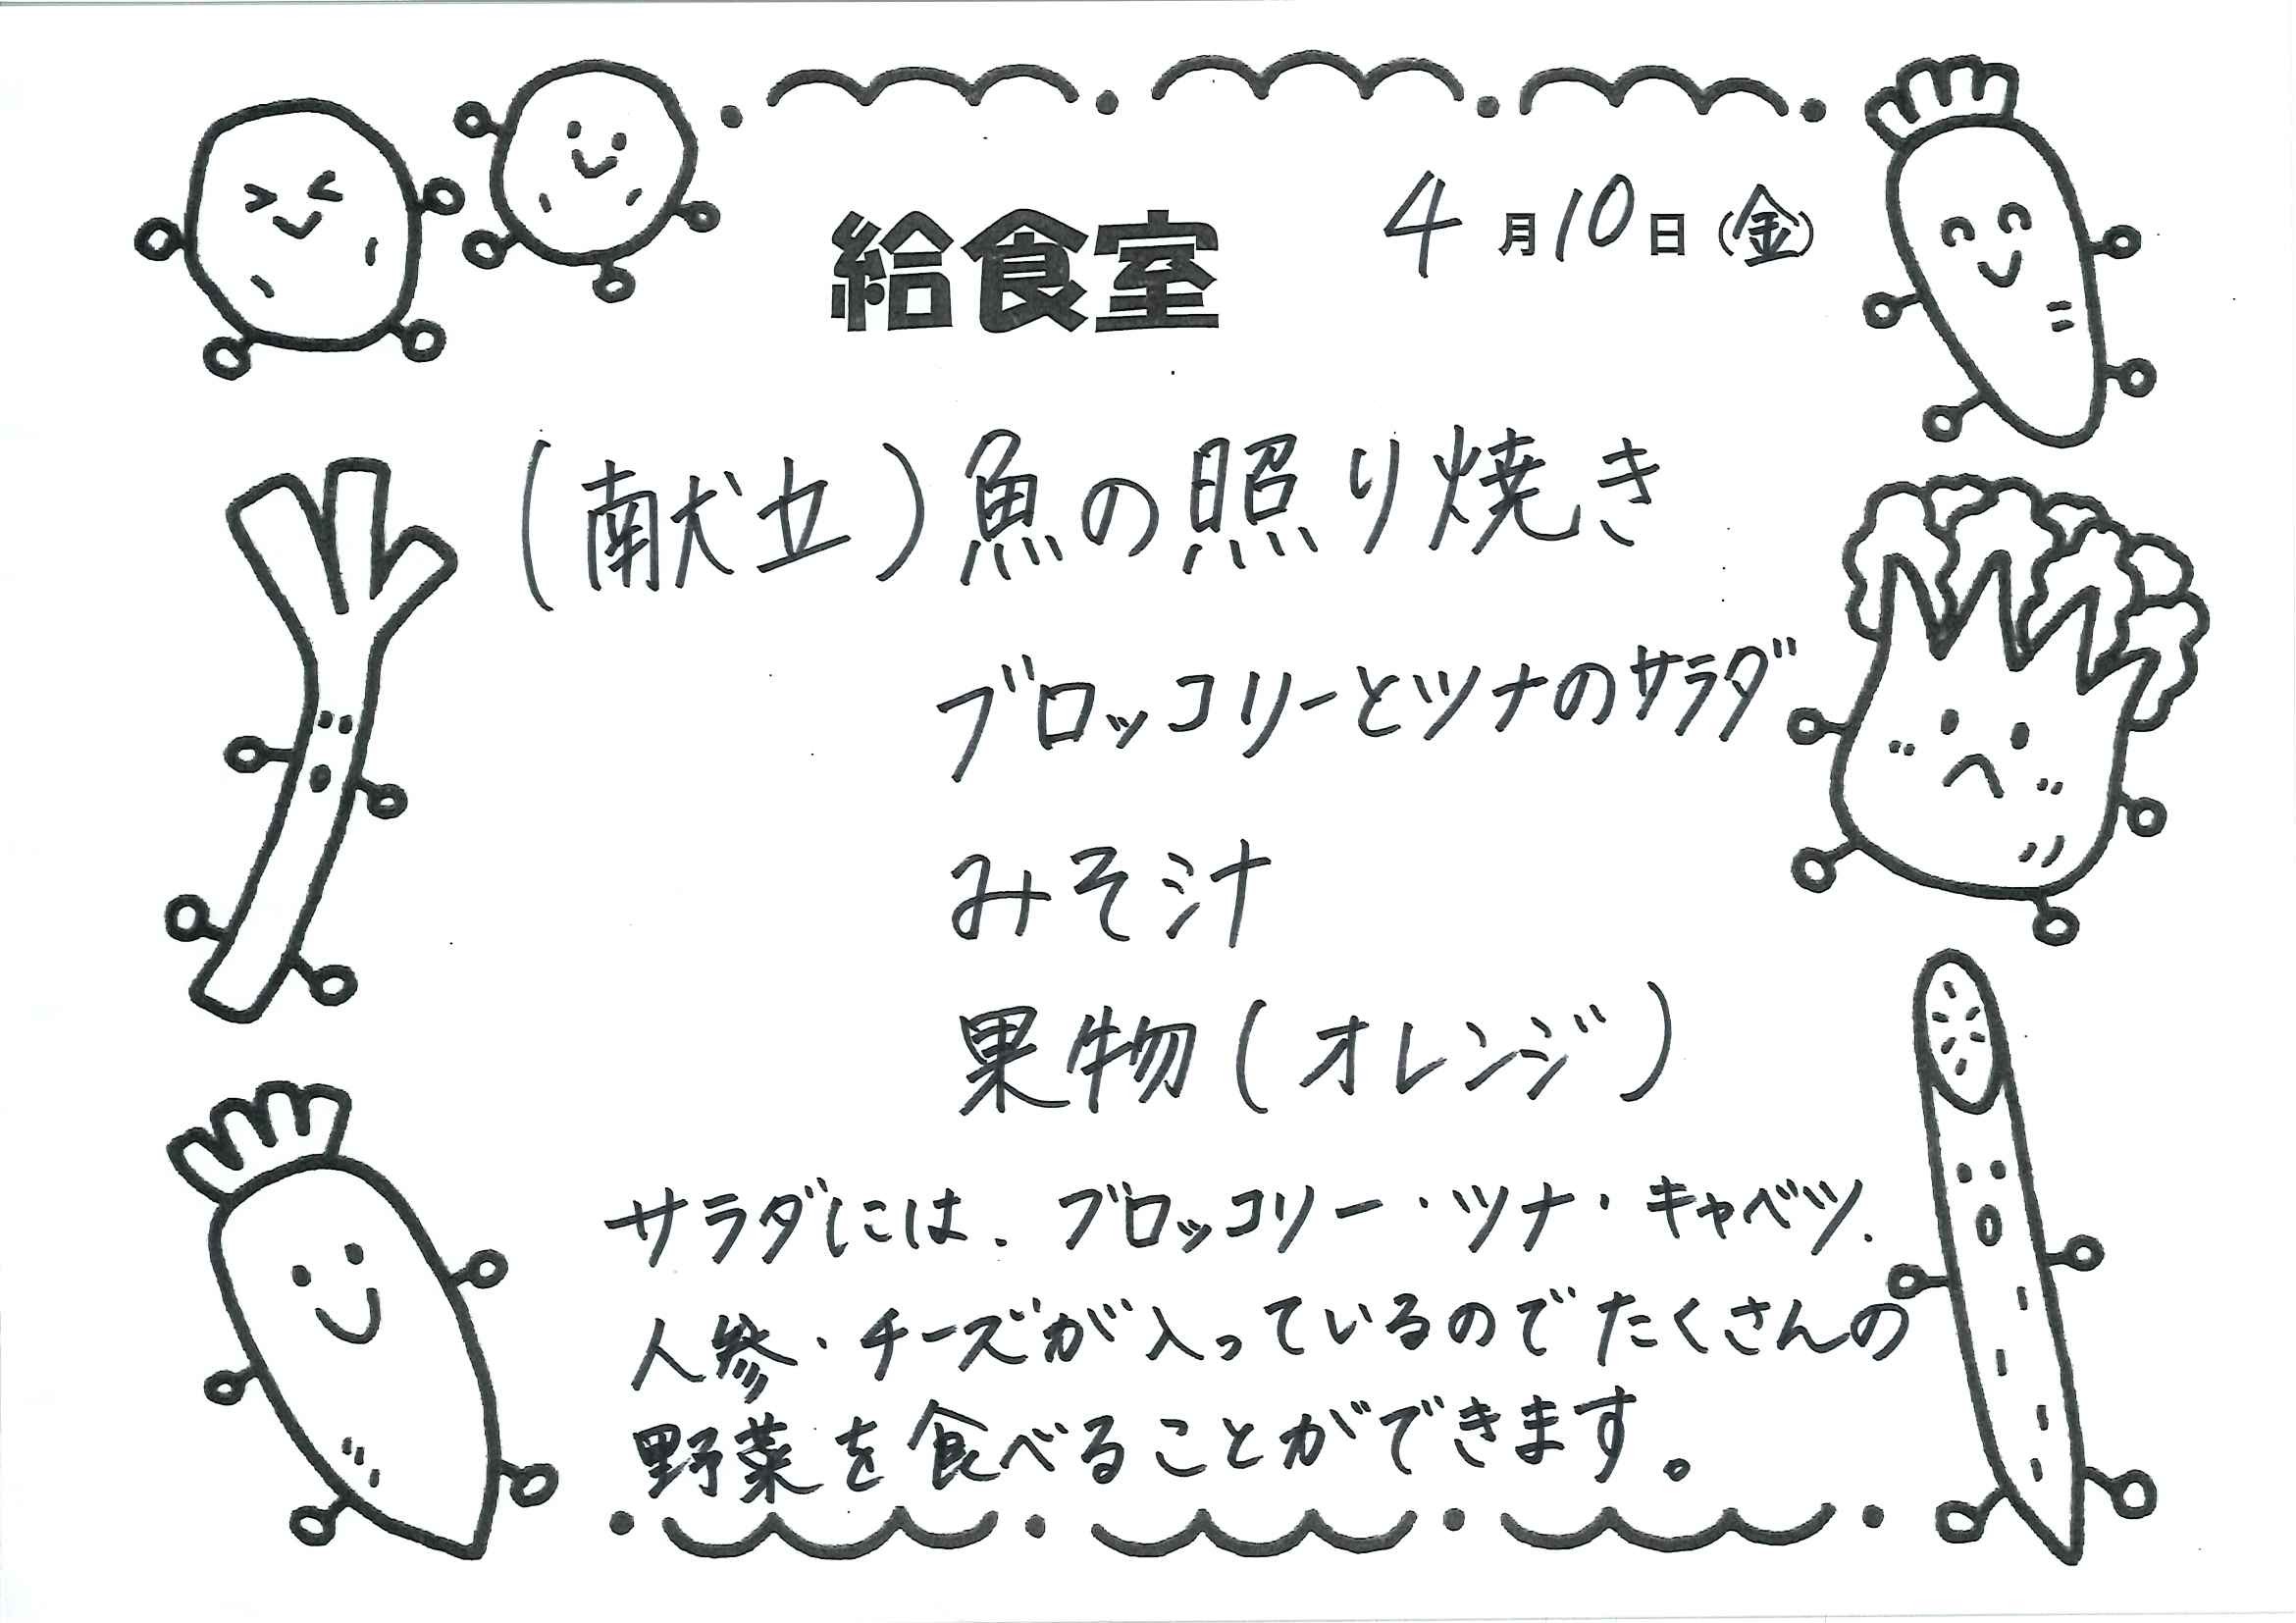 給食室
4月10日(金)
(献立)魚の照り焼き
ブロッコリーとツナのサラダ
みそ汁
果物(オレンジ)
サラダには、ブロッコリー・ツナ・キャベツ、
人参・チーズが入っているのでたくさんの
野菜を食べることができます。